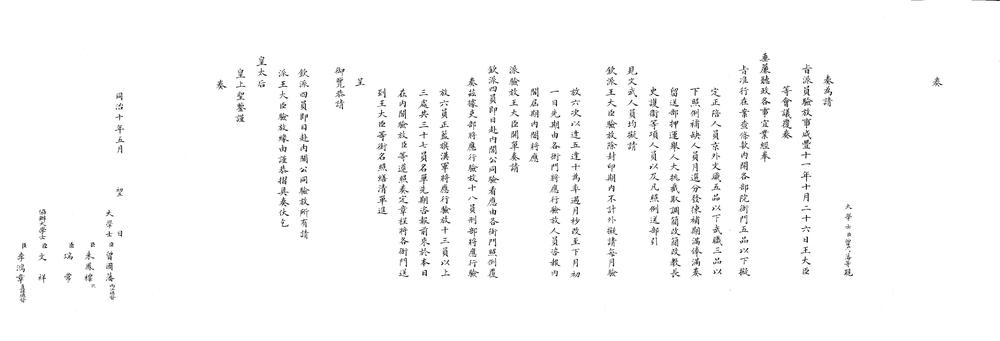 奏
大學士臣賈等跪
奏為請
旨派員驗放事咸豐十一年十月二十六日王大臣
等會議覆奏
垂簾聽政各事宜業經奉
旨准行在案查條款內開各部院衙門五品以下擬
定正陪人員京外文職五品以下武職三品以
下照例補缺人員月選分發俸補期滿俸滿奏
留送部押運舉人大挑截取調簡改簡改教長
史護衛等項人員以及凡照例送部引
見文武人員均擬請
欽派王大臣驗放除封印期內不計外擬請每月驗
放六次以逢五逢十為率遇月杪改至下月初
一日先期由各衙門將應行驗放人員咨報內
閣屆期內閣將應
派驗放王大臣開單奏請
欽派四員即日赴內閣公同驗看應由各衙門照例覆
奏茲據吏部將應行驗放十八員刑部將應行驗
放六員正藍旗漢軍將應行驗放十三員以上
三處共三十七員名單先期咨報前來於本日
在內閣驗放臣等遵照奏定章程將各衙門送
到王大臣等銜名照繕清單進
呈
御覽恭請
欽派四員即日赴內閣公同驗放所有請
派王大臣驗放緣由謹恭摺具奏伏乞
皇太后
皇上聖鑒謹
奏
同治十年五月 日
大學士臣曾國藩
臣朱鳳標
臣瑞常
協辦大學士臣文祥
臣李鴻章